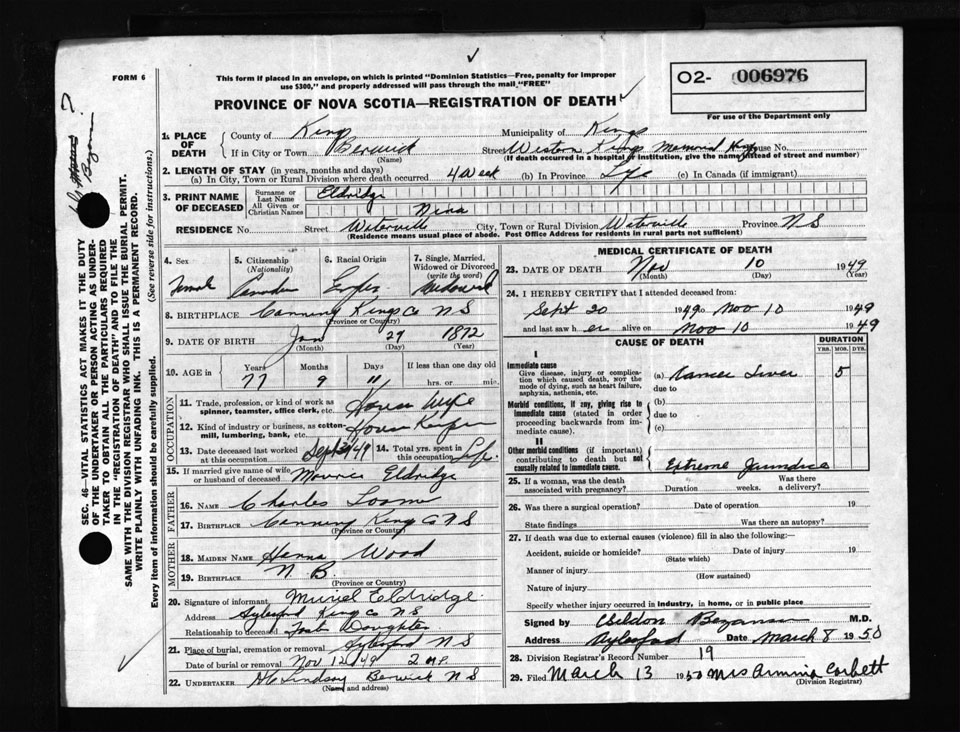 FORM 6
This form if placed in an envelope, on which is printed "Dominion Statistics—Free, penalty for improper
use $300," and properly addressed will pass through the mail "FREE"
O2- 006976
For use of the Department only
PROVINCE OF NOVA SCOTIA—REGISTRATION OF DEATH
1. PLACE OF DEATH
County of Kings Municipality of Kings
If in City or Town Berwick (Name) Street Western Kings Memorial House No.
(If death occurred in a hospital or institution, give the name instead of street and number)
2. LENGTH OF STAY (in years, months and days)
(a) In City, Town or Rural Division where death occurred 4 Week (b) In Province Life (c) In Canada (if immigrant)
3. PRINT NAME OF DECEASED
Surname or Last Name Eldridge
All Given or Christian Names Nina
RESIDENCE No. Street Waterville City, Town or Rural Division Waterville Province N S
(Residence means usual place of abode. Post Office Address for residents in rural parts not sufficient)
4. SEX
Female
5. CITIZENSHIP (Nationality)
6. RACIAL ORIGIN
7. Single, Married, Widowed or Divorced (write the word)
8. BIRTHPLACE Canning Kings Co N S
(Province or Country)
9. DATE OF BIRTH Jan (Month) 29 (Day) 1872 (Year)
10. AGE IN Years 77 Months 9 Days 11 If less than one day old hrs. or min.
OCCUPATION
11. Trade, profession, or kind of work as spinner, teamster, office clerk, etc. House Wife
12. Kind of industry or business, as cotton-mill, lumbering, bank, etc. House Keeper
13. Date deceased last worked at this occupation
14. Total yrs. spent in this occupation Life
15. If married give name of wife or husband of deceased Eldridge
FATHER
16. NAME Charles
17. BIRTHPLACE Canning Kings Co N S
(Province or Country)
MOTHER
18. MAIDEN NAME Wood
19. BIRTHPLACE N. B.
(Province or Country)
20. Signature of informant Muriel Eldridge
Address Aylesford Kings Co N S
Relationship to deceased Daughter
21. Place of burial, cremation or removal Aylesford N S
Date of burial or removal Nov 12 '49
22. UNDERTAKER Lindsay Berwick N S
(Name and address)
MEDICAL CERTIFICATE OF DEATH
23. DATE OF DEATH Nov (Month) 10 (Day) 1949 (Year)
24. I HEREBY CERTIFY that I attended deceased from:
Sept 20 1949 to Nov 10 1949
and last saw her alive on Nov 10 1949
CAUSE OF DEATH
DURATION
YRS. MOS. DYS.
I
Immediate cause
Give disease, injury or complication which caused death, not the mode of dying, such as heart failure, asphyxia, asthenia, etc.
(a) Cancer Liver 5
due to
Morbid conditions, if any, giving rise to immediate cause (stated in order proceeding backwards from immediate cause).
(b)
due to
(c)
II
Other morbid conditions (if important) contributing to death but not causally related to immediate cause.
Extreme Jaundice
25. If a woman, was the death associated with pregnancy? Duration weeks. Was there a delivery?
26. Was there a surgical operation? Date of operation 19
State findings Was there an autopsy?
27. If death was due to external causes (violence) fill in also the following:—
Accident, suicide or homicide? Date of injury 19
(State which)
Manner of injury
(How sustained)
Nature of injury
Specify whether injury occurred in industry, in home, or in public place
Signed by Bezanson M.D.
Address Aylesford Date March 8 1950
28. Division Registrar's Record Number 19
29. Filed March 13 1950 Mrs Armina Corbett
(Division Registrar)
SEC. 46—VITAL STATISTICS ACT MAKES IT THE DUTY
OF THE UNDERTAKER OR PERSON ACTING AS UNDERTAKER
TO OBTAIN ALL THE PARTICULARS REQUIRED
IN THE "REGISTRATION OF DEATH" AND TO FILE THE
SAME WITH THE DIVISION REGISTRAR WHO SHALL ISSUE THE BURIAL PERMIT.
WRITE PLAINLY WITH UNFADING INK. THIS IS A PERMANENT RECORD.
Every item of information should be carefully supplied. (See reverse side for instructions.)